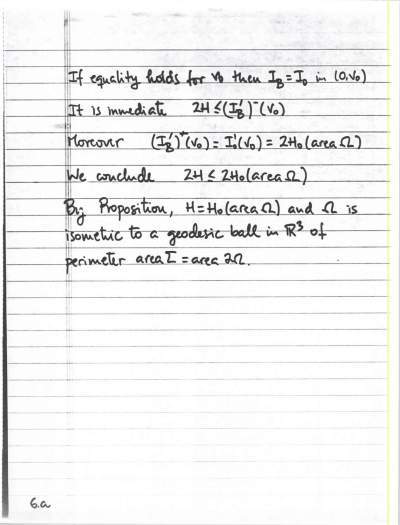 If equality holds for v₀ then I_B = I₀ in (0,v₀)
It is inmediate 2H ≤ (I'_B)⁻(v₀)
Moreover (I'_B)⁺(v₀) = I'₀(v₀) = 2H₀(area Ω)
We conclude 2H ≤ 2H₀(area Ω)
By Proposition, H = H₀(area Ω) and Ω is
isometric to a geodesic ball in ℝ³ of
perimeter area Σ = area ∂Ω.
6.a